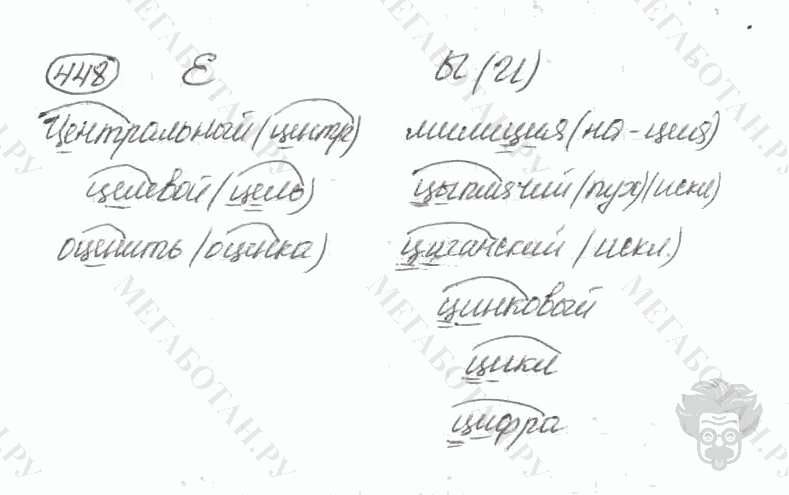 448 Е Ы (И)
Центральный (центр) милиция (на-ция)
целевой (цель) цыплячий (пух) (искл)
оценить (оценка) циганский (искл.)
цинковый
цикл
цифра
МЕГАБОТАН.РУ